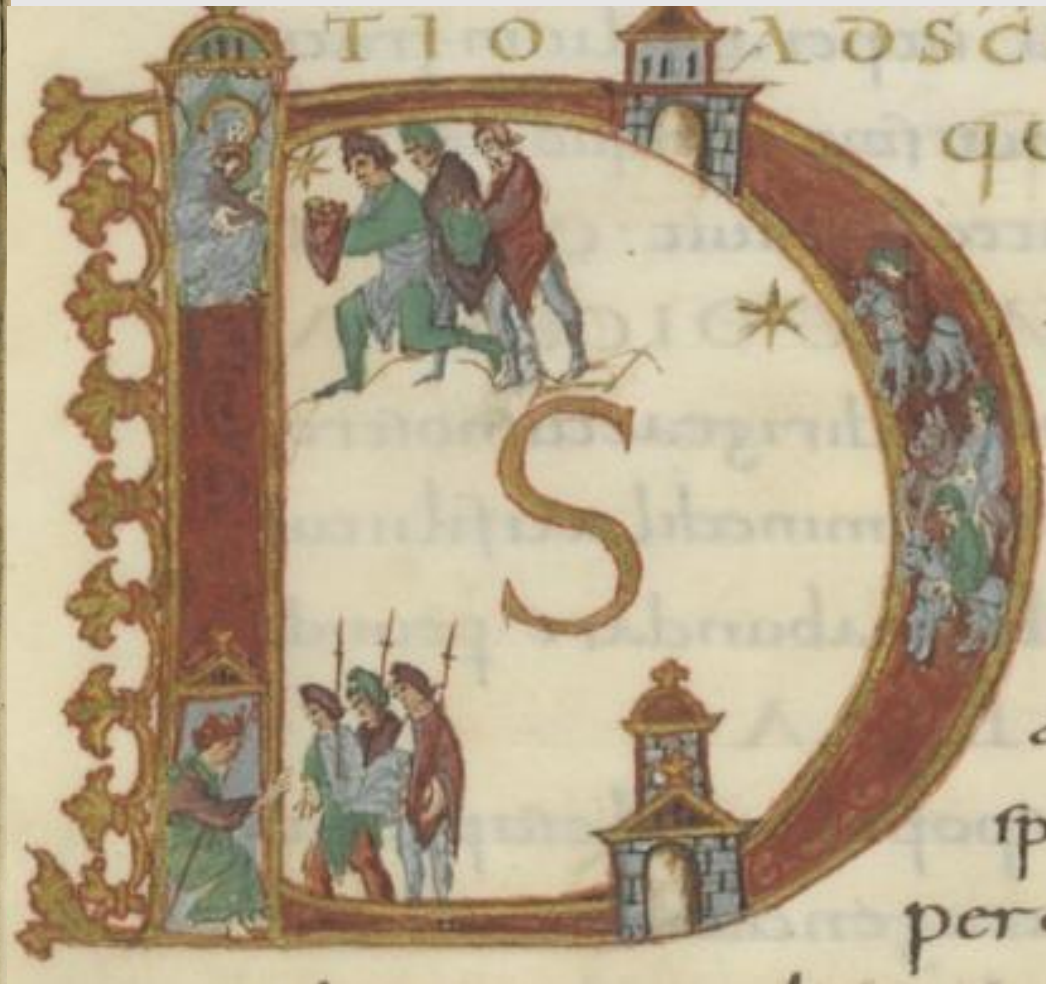 TIO ADSC
qu
DS̄
sp
per